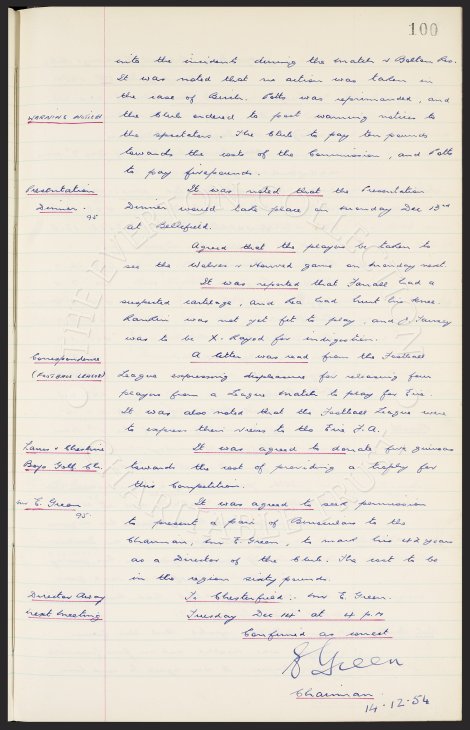 100
into the incident during the match v Bolton Res.
It was noted that no action was taken in
the case of Birch. Potts was reprimanded, and
WARNING NOTICES
the Club ordered to post warning notices to
the spectators. The Club to pay ten pounds
towards the costs of the Commission, and Potts
to pay five pounds.
Presentation
Dinner. 95
It was noted that the Presentation
Dinner would take place on Monday Dec 13th
at Bellefield.
Agreed that the players be taken to
see the Wolves v Honved game on Monday next.
It was reported that Farrall had a
suspected cartilage, and Rea had hurt his knee.
Rankin was not yet fit to play, and Fairney
was to be X. Rayed for indigestion.
Correspondence
(FOOTBALL LEAGUE)
A letter was read from the Football
League expressing displeasure for releasing four
players from a League match to play for Eire.
It was also noted that the Football League were
to express their views to the Eire F.A.
Lancs & Cheshire
Boys Golf Ch.
It was agreed to donate five guineas
towards the cost of providing a trophy for
this Competition.
Mr E. Green
95.
It was agreed to seek permission
to present a pair of Binoculars to the
Chairman, Mr E. Green, to mark his 42 years
as a Director of the Club. The cost to be
in the region sixty pounds.
Director Away
To Chesterfield :- Mr E. Green.
Next meeting
Tuesday Dec 14th at 4 p.m
Confirmed as correct
E Green
Chairman.
14.12.54
THE EVERTON COLLECTION
CHARITABLE TRUST